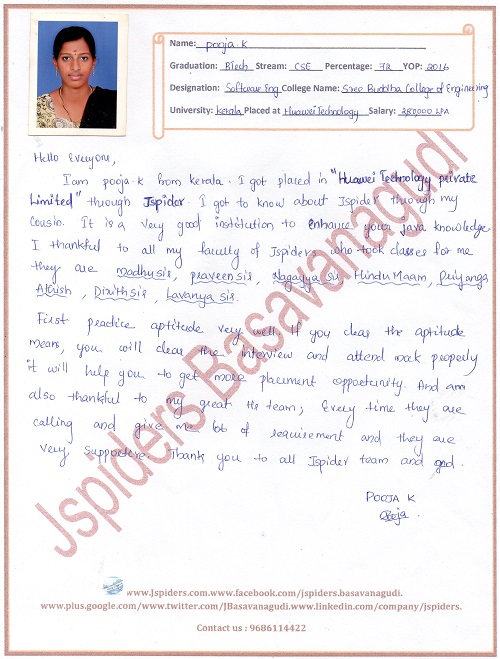 Name: pooja.k
Graduation: BTech Stream: CSE Percentage: 72 YOP: 2016
Designation: Software Eng College Name: Sree Buddha College of Engineering
University: Kerala Placed at Huawei Technology Salary: 280000 LPA
Hello Everyone,
I am pooja.k from kerala. I got placed in "Huawei Technology private
Limited" through Jspider. I got to know about Jspider through my
cousin. It is a very good institution to enhance your java knowledge.
I thankful to all my faculty of Jspiders who took classes for me
they are madhu sir, praveen sir, Nagayya Sir Hindu Maam, Priyanga
Atvish, Dixith sir, Lavanya sir.
First practice aptitude very well if you clear the aptitude
means, you will clear the interview and attend mock properly
it will help you to get more placement oppertunity. And am
also thankful to my great Hr team, Every time they are
calling and give me lot of requirement and they are
very supportive. Thank you to all Jspider team and god.
POOJA K
Pooja.
Jspiders Basavanagudi
www.jspiders.com.www.facebook.com/jspiders.basavanagudi.
www.plus.google.com/www.twitter.com/JBasavanagudi.www.linkedin.com/company/jspiders.
Contact us : 9686114422